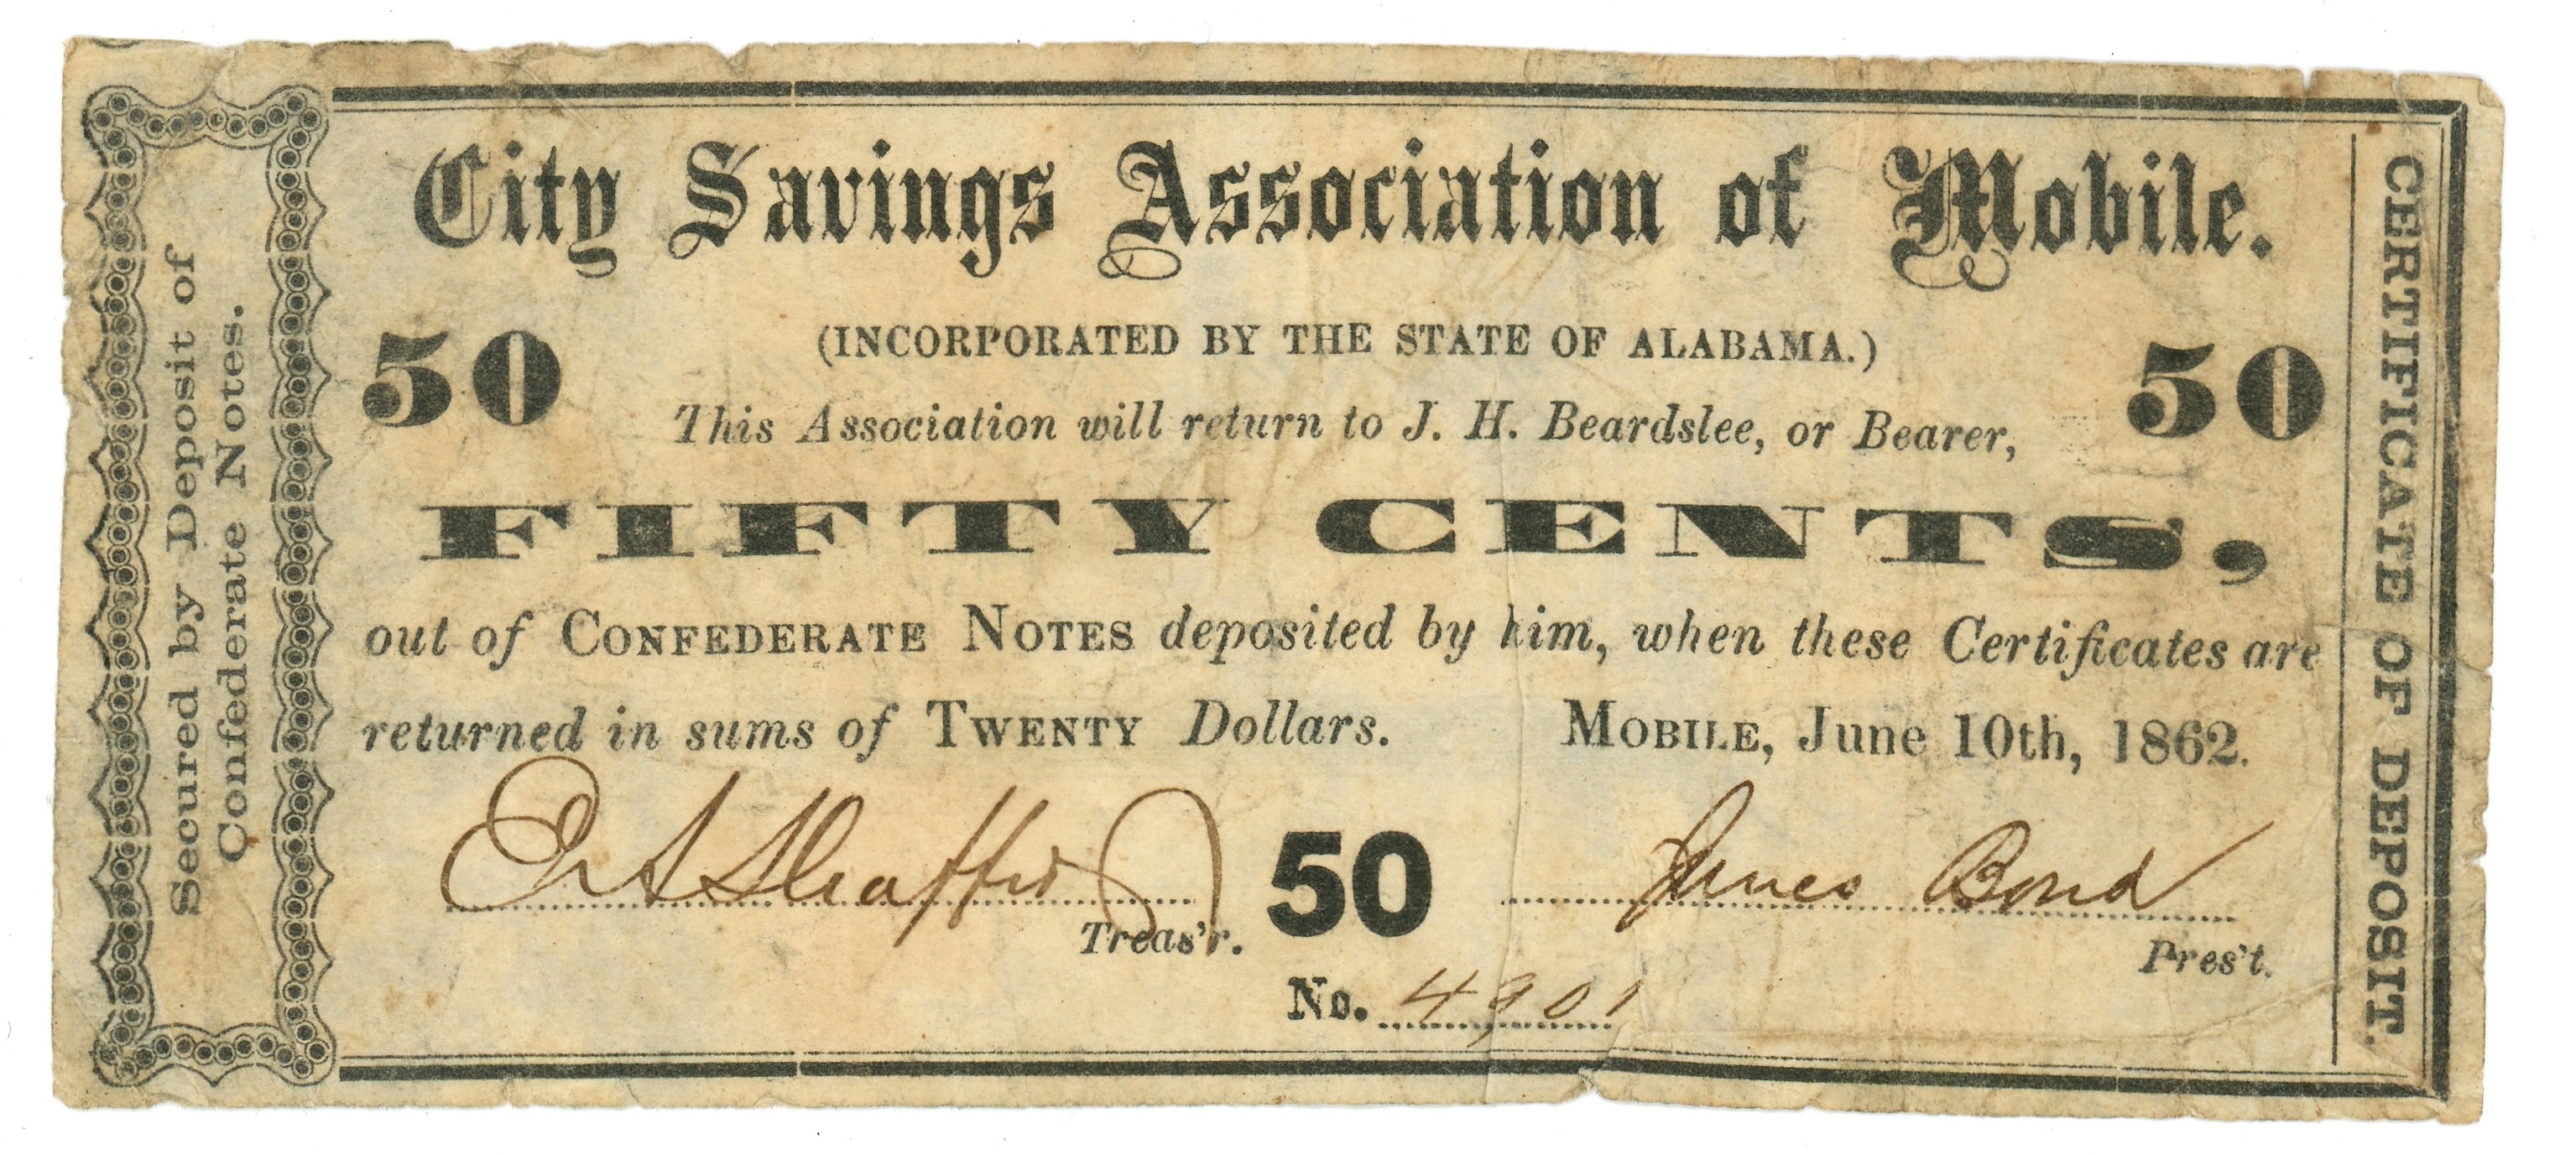 City Savings Association of Mobile.
(INCORPORATED BY THE STATE OF ALABAMA.)
50
50
This Association will return to J. H. Beardslee, or Bearer,
FIFTY CENTS,
out of CONFEDERATE NOTES deposited by him, when these Certificates are
returned in sums of TWENTY Dollars. MOBILE, June 10th, 1862.
James Bond
Treas'r.
50
Pres't.
No. 4901
Secured by Deposit of
Confederate Notes.
CERTIFICATE OF DEPOSIT.